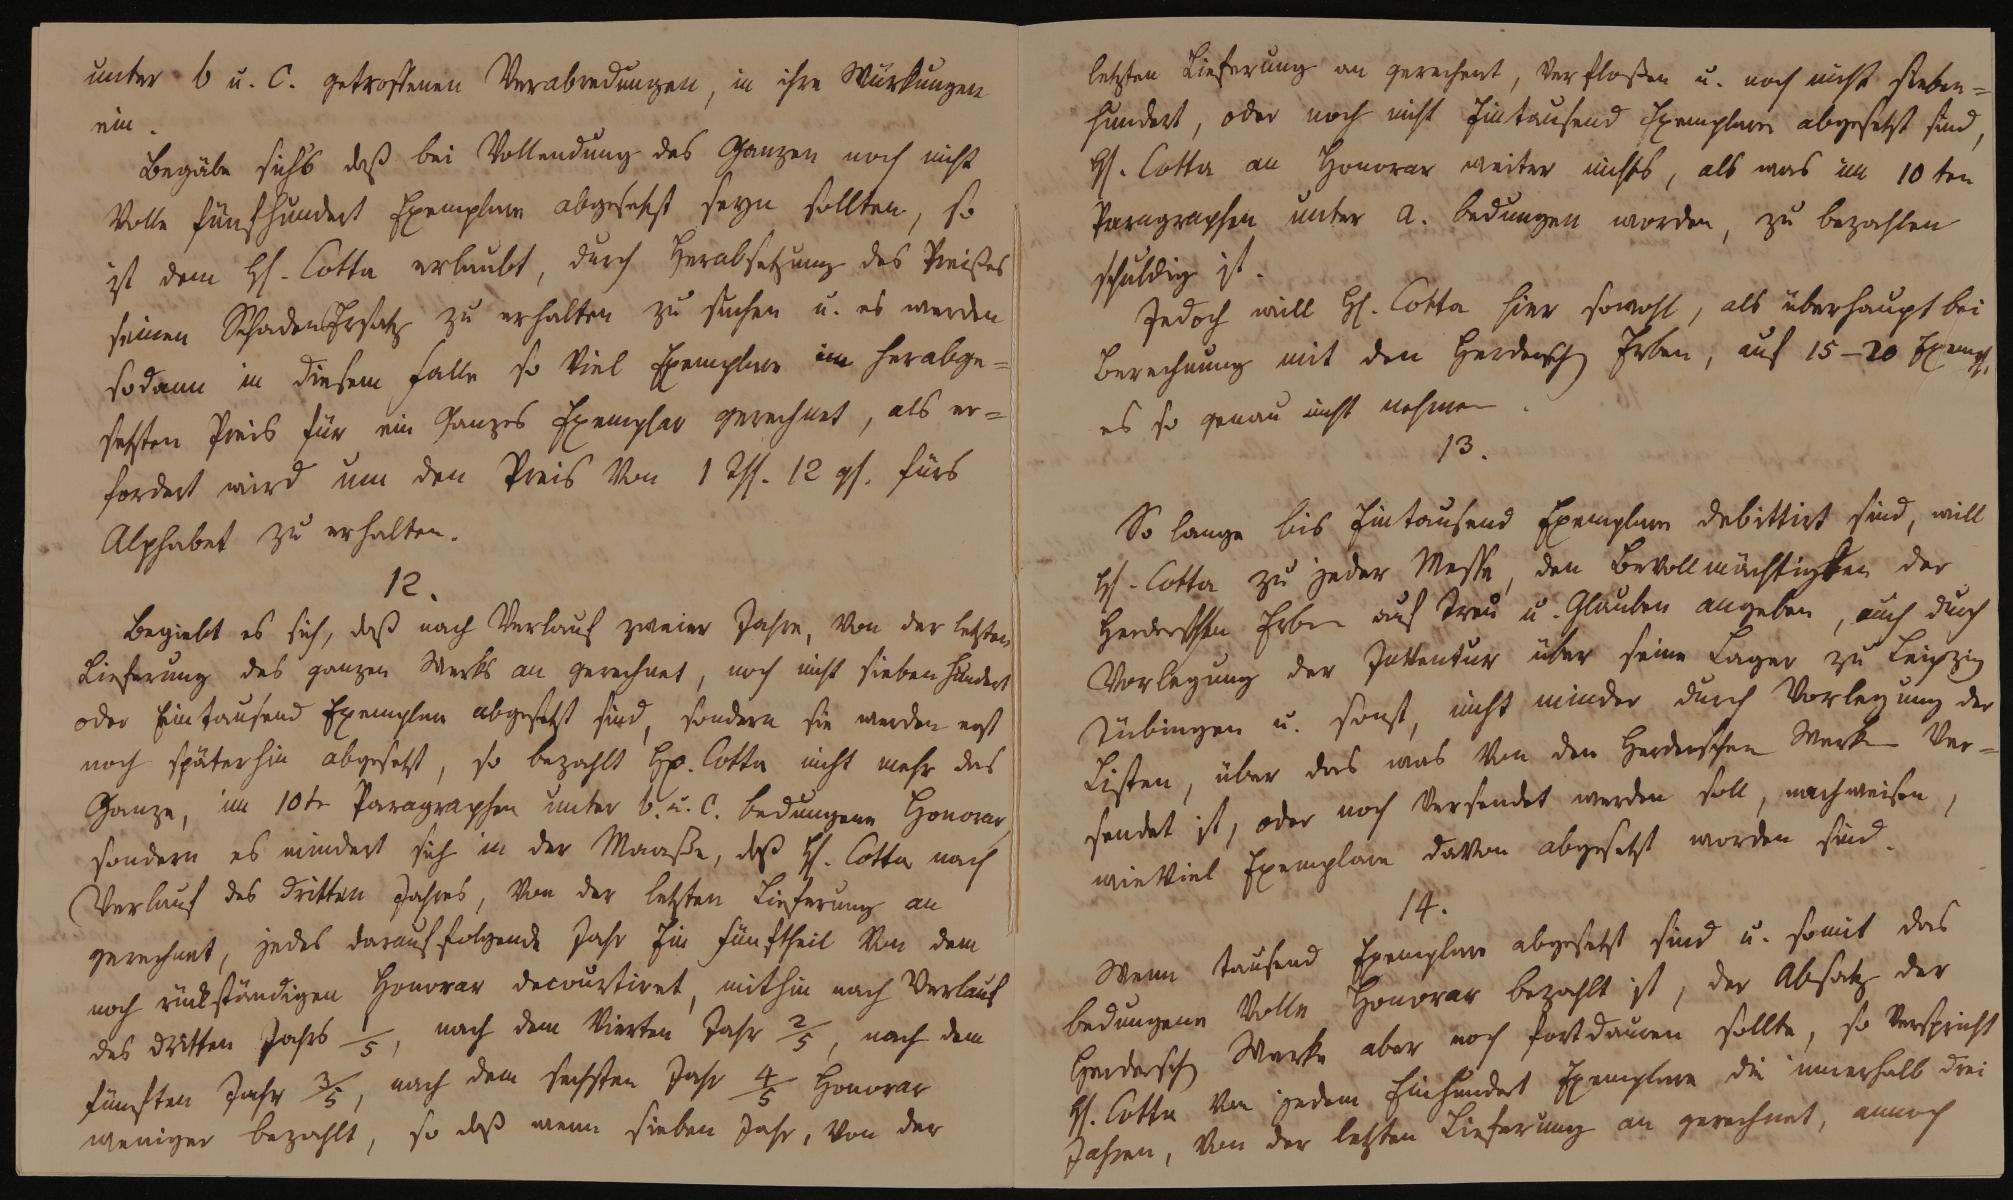 unter b u. C. getroffenen Verabredungen, in ihre Würkungen
ein.
Begäbe sichs daß bei Vollendung des Ganzen noch nicht
Volle fünfhundert Exemplare abgesetzt seyn sollten, so
ist dem H. Cotta erlaubt, durch Herabsetzung des Preißes
seinen SchadensErsatz zu erhalten zu suchen u. es werden
sodann in diesem Falle so viel Exemplare im herabge=
setzten Preis für ein Ganzes Exemplar gerechnet, als er=
fordert wird um den Preis von 1 Thl. 12 gl. fürs
Alphabet zu erhalten.
12.
Begiebt es sich, daß nach Verlauf zweier Jahre, von der letzten
Lieferung des ganzen Werks an gerechnet, noch nicht siebenhundert
oder Eintausend Exemplare abgesetzt sind, sondern sie werden erst
noch späterhin abgesetzt, so bezahlt H. Cotta nicht mehr das
Ganze, im 10te Paragraphen unter b. u. C. bedungene Honorar,
sondern es mindert sich in der Maaße, daß H. Cotta nach
Verlauf des dritten Jahres, von der letzten Lieferung an
gerechnet, jedes darauf folgende Jahr Ein Fünftheil von dem
noch rückständigen Honorar decourtiret, mithin nach Verlauf
des dritten Jahrs 1/5, nach dem vierten Jahr 2/5, nach dem
fünften Jahr 3/5, nach dem sechsten Jahr 4/5 Honorar
weniger bezahlt, so daß wenn sieben Jahr, von der
letzten Lieferung an gerechent, verfloßen u. noch nicht sieben=
hundert, oder noch nicht Eintausend Exemplare abgesetzt sind,
H. Cotta an Honorar weiter nichts, als was im 10ten
Paragraphen unter a. bedungen worden, zu bezahlen
schuldig ist.
Jedoch will H. Cotta hier sowohl, als überhaupt bei
Berechnung mit den Herdersch Erben, auf 15–20 Exempl.
es so genau nicht nehmen.
13.
So lange bis Eintausend Exemplare debittirt sind, will
H. Cotta zu jeder Messe, den Bevollmächtigten der
Herderschen Erben auf Treu u. Glauben angeben, auch durch
Vorlegung der Inventur über seine Lager zu Leipzig
Tübingen u. sonst, nicht minder durch Vorlegung der
Listen, über das was von den Herderschen Werken ver=
sendet ist, oder noch versendet werden soll, nachweisen,
wieviel Exemplare davon abgesetzt worden sind.
14.
Wenn tausend Exemplare abgesetzt sind u. somit das
bedungene volle Honorar bezahlt ist, der Absatz der
Herdersch Werke aber noch fortdauren sollte, so verspricht
H. Cotta von jedem Einhundert Exemplare die innerhalb drei
Jahren, von der letzten Lieferung an gerechnet, annoch